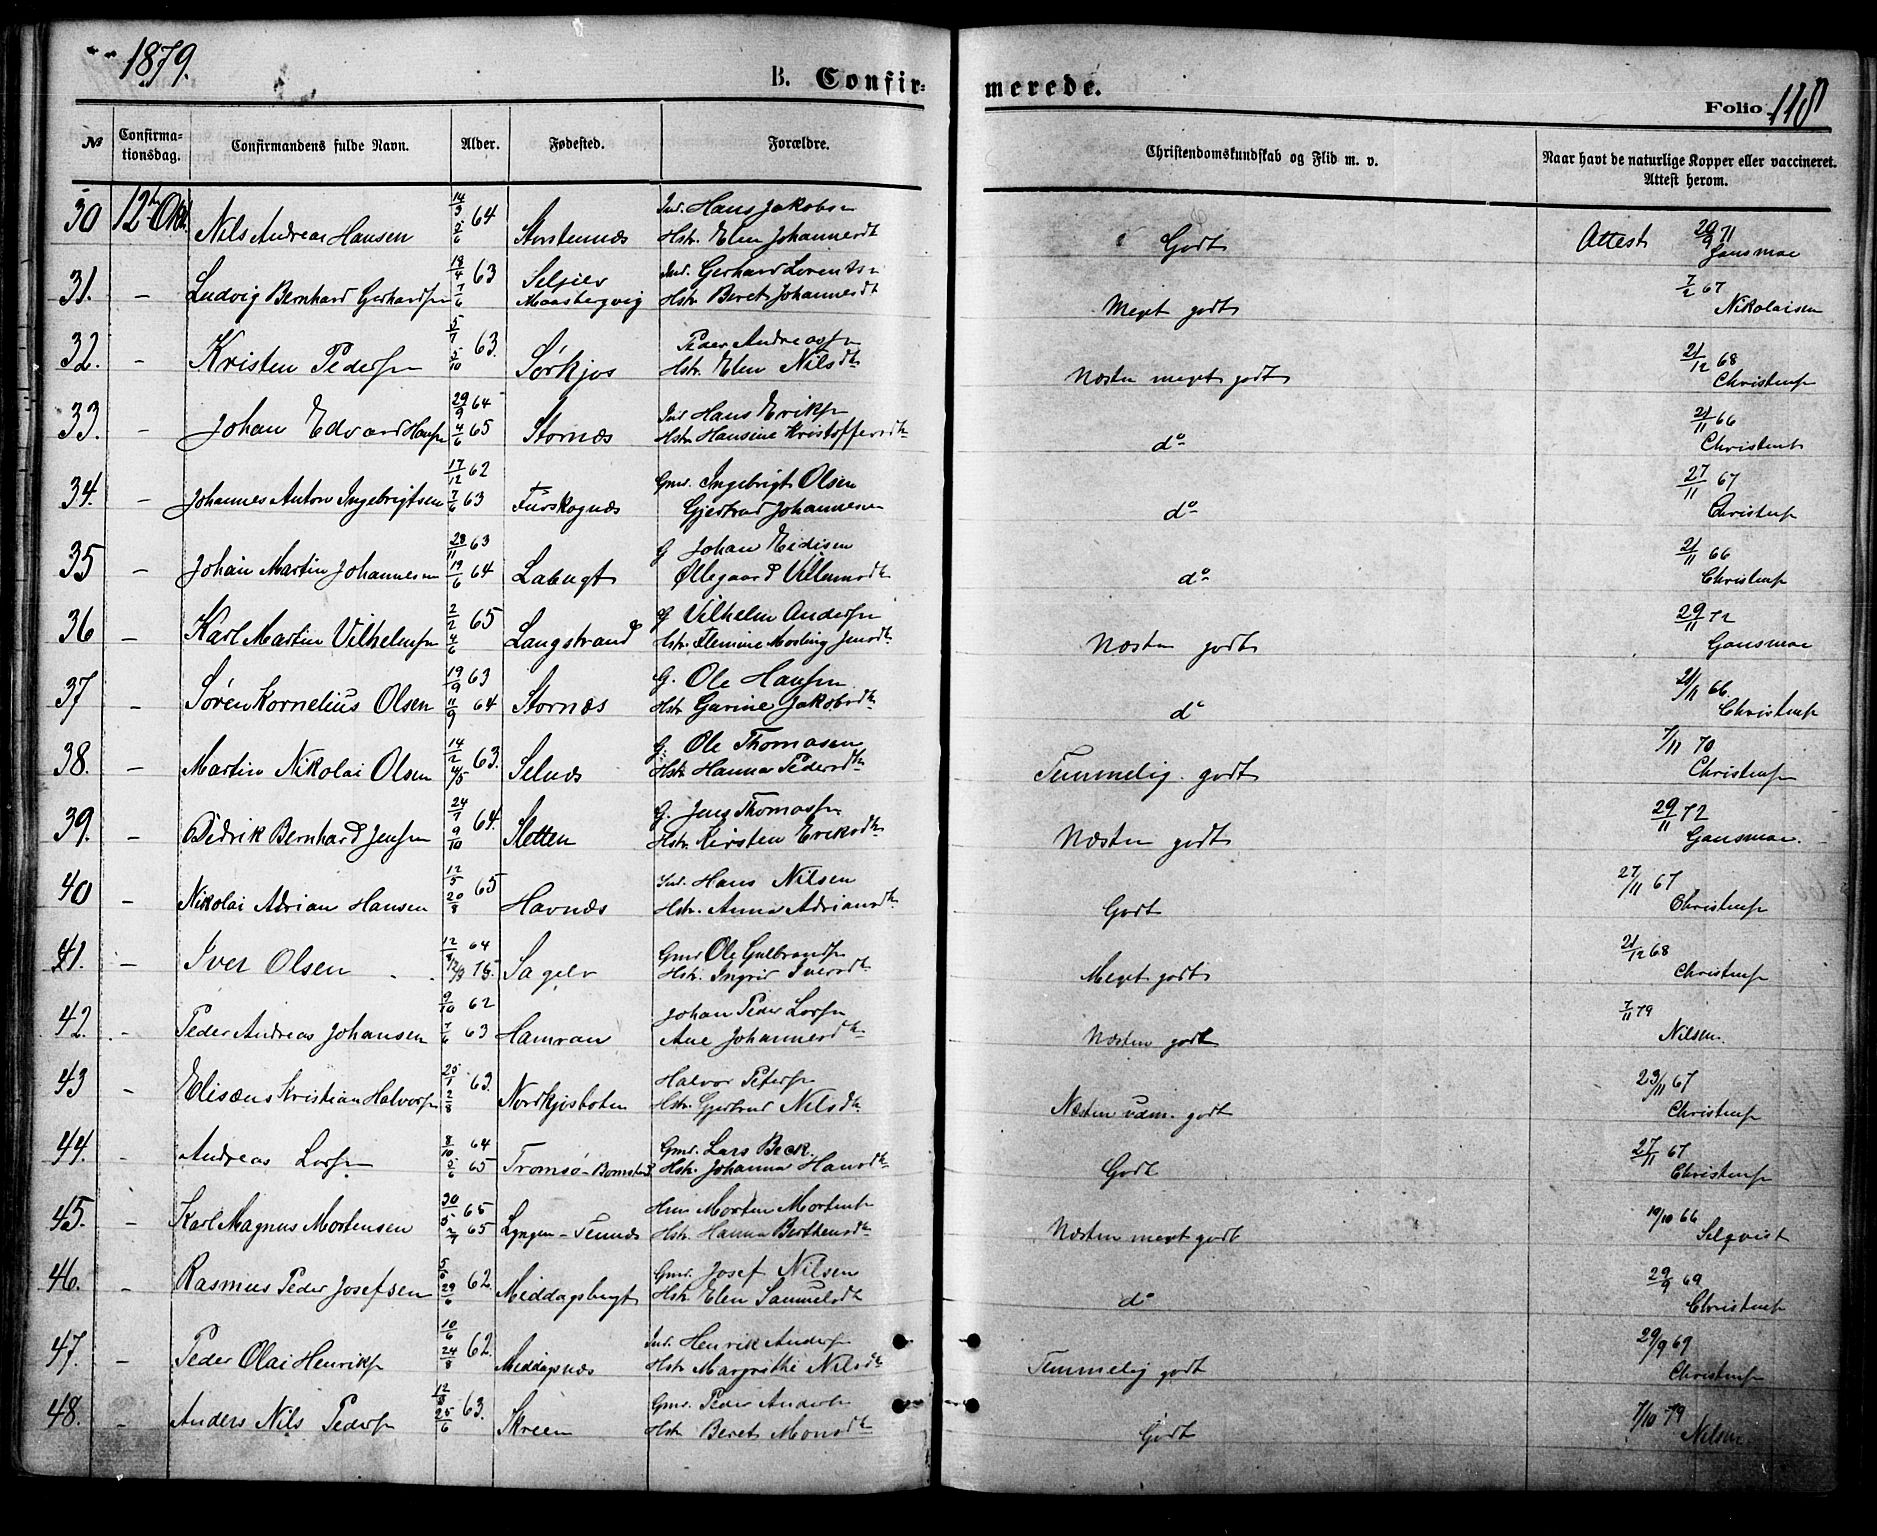 1879.
B. Confir-
merede.
Folio 110
No
Confirma-
tionsdag.
Confirmandens fulde Navn.
Alder.
Fødested.
Forældre.
Christendomskundskab og Flid m. v.
Naar havt de naturlige Kopper eller vaccineret.
Attest herom.
30 12 Okt. Nils Andreas Hansen 14/3 64 2/6 Storstennæs Ind. Hans Jakobsen
Hstr. Elen Johannesdtr Godt Attest 29/9 71 Gausmoe
31. - Ludvig Bernhard Gerhardsen 18/4 63 7/6 Seljelv Maasbergvig Ind. Gerhard Lorentsen
Hstr. Beret Johannesdtr Meget godt 7/2 67 Nikolaisen
32. - Kristen Pedersen 5/7 63. 5/10 Sørkjos Peder Andreassen
Hstr. Elen Nilsdtr Næsten meget godt 21/12 68 Christensen
33. - Johan Edvard Hansen 29/9 64 4/6 65 Stornæs Ind Hans Eriksen
Hstr. Hansine Kristoffersdtr do 21/11 66 Christensen
34. - Johannes Anton Ingebrigtsen 17/12 62 7/6 63 Furskognæs Gmd. Ingebrigt Olsen
Gjertrud Johannesen do 27/11 67 Christensen
35 - Johan Martin Johannesen 23/11 63 19/6 64 Labugt G Johan
Ollegaard do 21/11 66 Christensen
36 - Karl Martin Vilhelmsen 2/2 65 4/6 Langstrand G Vilhelm Andersen
Hstr. Næsten godt 29/11 72 Gausmoe
37 - Søren Kornelius Olsen 19/9 63 11/9 64 Stornæs G. Ole Hansen
Hstr Gurine Jakobsdtr do 21/11 66. Christensen
38. - Martin Nikolai Olsen 14/2 63. 4/5 Selnæs G. Ole Thomasen
Hstr Hanna Pedersdtr Temmelig godt 7/11 70 Christensen
39. - Didrik Bernhard Jensen 24/7 64. 9/10 Sletten G. Jens Thomassen
Hstr. Kirsten Eriksdtr Næsten godt 29/11 72 Gausmoe.
40 - Nikolai Adrian Hansen 12/5 65 20/8 Havnæs Ind. Hans Nilsen
Hstr. Anna Adriansdtr. Godt 27/11 67 Christensen
41. - Iver Olsen 64 75. Sagelv Gmd Ole Gulbrandsen
Hstr. Ingrid Iversdtr Meget godt 21/12 68 Christensen
42. - Peder Andreas Johansen 9/10 62 7/6 63 Hamran Johan Peder Larsen
Ane Johannesdtr Næsten godt 7/11 79 Nilsen.
43 - Elisæus Kristian Halvorsen 25/1 63. 2/8 Nordkjosbotn Halvor Petersen
Hstr. Gjertrud Nilsdtr. Næsten udm. godt 23/11 67 Christensen
44. - Andreas Larsen 8/10 64 5/6 65 Tromsø- Gmd. Lars Beck.
Hstr. Johanna Hansdtr Godt 27/11 67 Christensen
45. - Karl Magnus Mortensen 30/5 65 2/7 65 Lyngen- Morten Mortensen
Hstr. Hanna Næsten meget godt 19/10 66 Selqvist
46. - Rasmus Peder Josefsen 62. 29/6 Middagsbugt Gmd. Josef Nilsen
Hstr Elen Samuelsdtr do 29/9 69 Christensen
47. - Peder Olai Henriksen 10/6 62. 24/8 Middagsnæs Ind. Henrik Andersen
Hstr Margrethe Nilsdtr Temmelig godt 29/9 69 Christensen
48. - Anders Nils Pedersen 12/3 63. 25/6 Skreen Gmd. Peder Andersen
Hstr Beret Monsdtr Godt 7/10 79 Nilsen